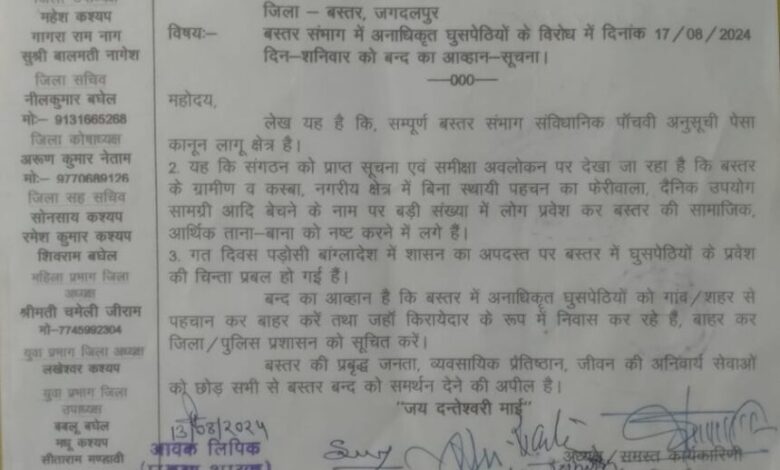 महेश कश्यप
गागरा राम नाग
सुश्री बालमती नागेश
जिला सचिव
नीलकुमार बघेल
मो:- 9131665268
जिला कोषाध्यक्ष
अरूण कुमार नेताम
मो:- 9770689126
जिला सह सचिव
सोनसाय कश्यप
रमेश कुमार कश्यप
शिवराम बघेल
महिला प्रभाग जिला
अध्यक्ष
श्रीमती चमेली जीराम
मो-7745992304
युवा प्रभाग जिला अध्यक्ष
लखेश्वर कश्यप
युवा प्रभाग जिला
उपाध्यक्ष
बबलू बघेल
मधू कश्यप
सीताराम मण्डावी
जिला – बस्तर, जगदलपुर
विषयः– बस्तर संभाग में अनाधिकृत घुसपेठियों के विरोध में दिनांक 17/08/2024
दिन–शनिवार को बन्द का आव्हान–सूचना।
—000—
महोदय,
लेख यह है कि, सम्पूर्ण बस्तर संभाग संविधानिक पाँचवी अनुसूची पेसा
कानून लागू क्षेत्र है।
2. यह कि संगठन को प्राप्त सूचना एवं समीक्षा अवलोकन पर देखा जा रहा है कि बस्तर
के ग्रामीण व कस्बा, नगरीय क्षेत्र में बिना स्थायी पहचन का फेरीवाला, दैनिक उपयोग
सामग्री आदि बेचने के नाम पर बड़ी संख्या में लोग प्रवेश कर बस्तर की सामाजिक,
आर्थिक ताना–बाना को नष्ट करने में लगे हैं।
3. गत दिवस पड़ोसी बांग्लादेश में शासन का अपदस्त पर बस्तर में घुसपेठियों के प्रवेश
की चिन्ता प्रबल हो गई हैं।
बन्द का आव्हान है कि बस्तर में अनाधिकृत घुसपेठियों को गांव/शहर से
पहचान कर बाहर करें तथा जहाँ किरायेदार के रूप में निवास कर रहे हैं, बाहर कर
जिला/पुलिस प्रशासन को सूचित करें।
बस्तर की प्रबृद्ध जनता, व्यवसायिक प्रतिष्ठान, जीवन की अनिवार्य सेवाओं
को छोड़ सभी से बस्तर बन्द को समर्थन देने की अपील है।
"जय दन्तेश्वरी माई"
13/08/2024
आवक लिपिक
अध्यक्ष समस्त कार्यकारिणी